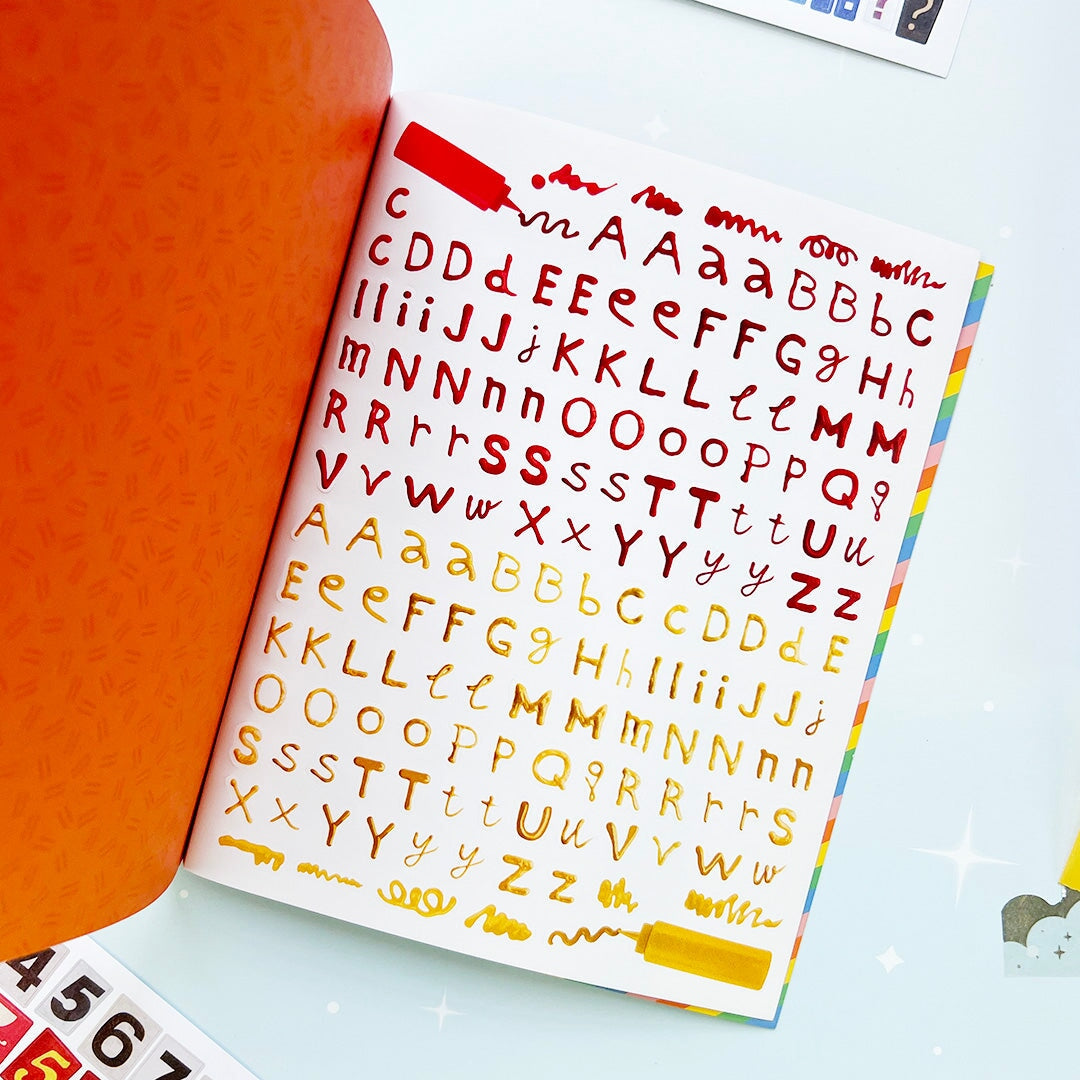 ? ?
C A A a a B B b C
c D D d E E e e F F G g H h
I I i i J J j K K L L l l M M
m N N n n O O o o P P Q q
R R r r S S s s T T t t U u
V v W w X x Y Y y y Z z
A A a a B B b C c D D d E
E e e F F G g H h I I i i J J j
K K L L l l M M m N N n n
O O o o P P Q q R R r r S
S s s T T t t U u V v W w
X x Y Y y y Z z
4 5 6 7
5